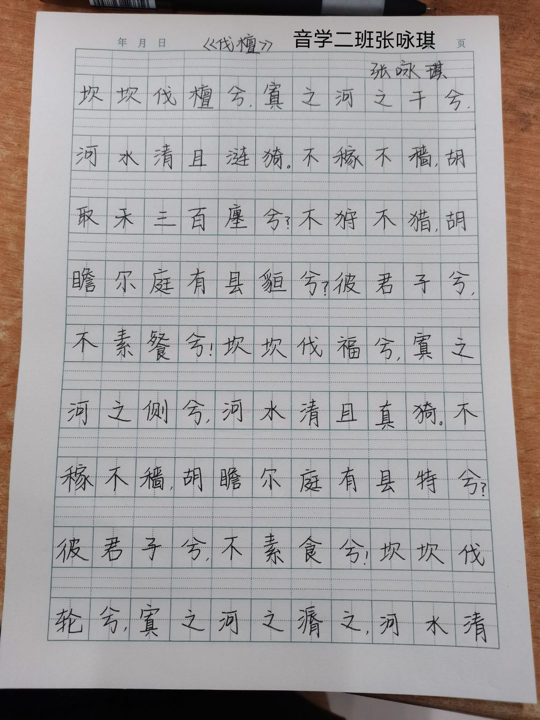 年 月 日 《伐檀》 音学二班张咏琪 页
张咏琪
坎坎伐檀兮,寘之河之干兮.
河水清且涟猗。不稼不穑,胡
取禾三百廛兮?不狩不猎,胡
瞻尔庭有县貆兮?彼君子兮,
不素餐兮!坎坎伐福兮,寘之
河之侧兮,河水清且真猗。不
稼不穑,胡瞻尔庭有县特兮?
彼君子兮,不素食兮!坎坎伐
轮兮,寘之河之漘之,河水清